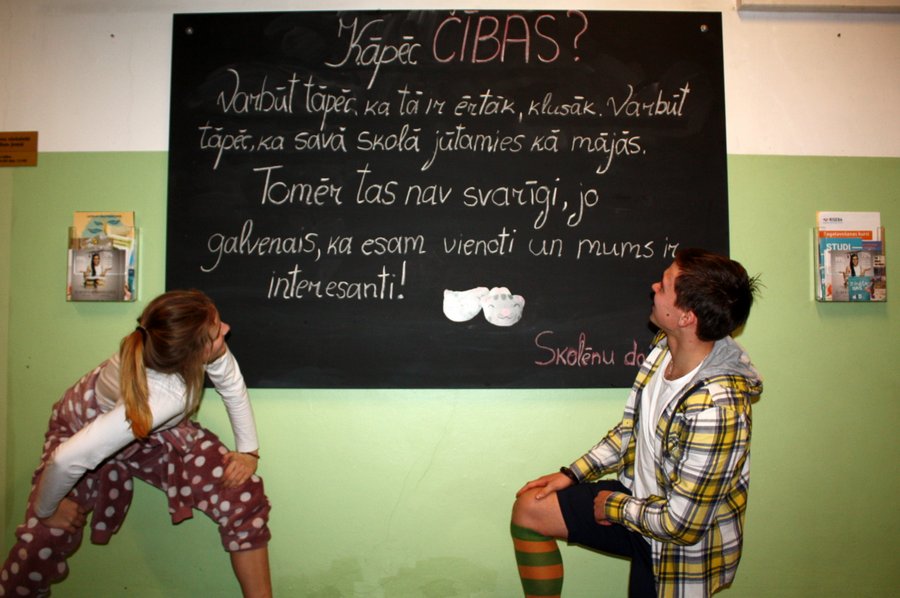 Kāpēc ČĪBAS?
Varbūt tāpēc, ka tā ir ērtāk, klusāk. Varbūt
tāpēc, ka savā skolā jūtamies kā mājās.
Tomēr tas nav svarīgi, jo
galvenais, ka esam vienoti un mums ir
interesanti!
Skolēnu do
STUDI